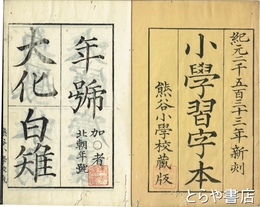 紀元二千五百三十三年新刻
小學習字本
熊谷小學校藏版
年號
加〇者
北朝年號
大化
白雉
古書 ひやね